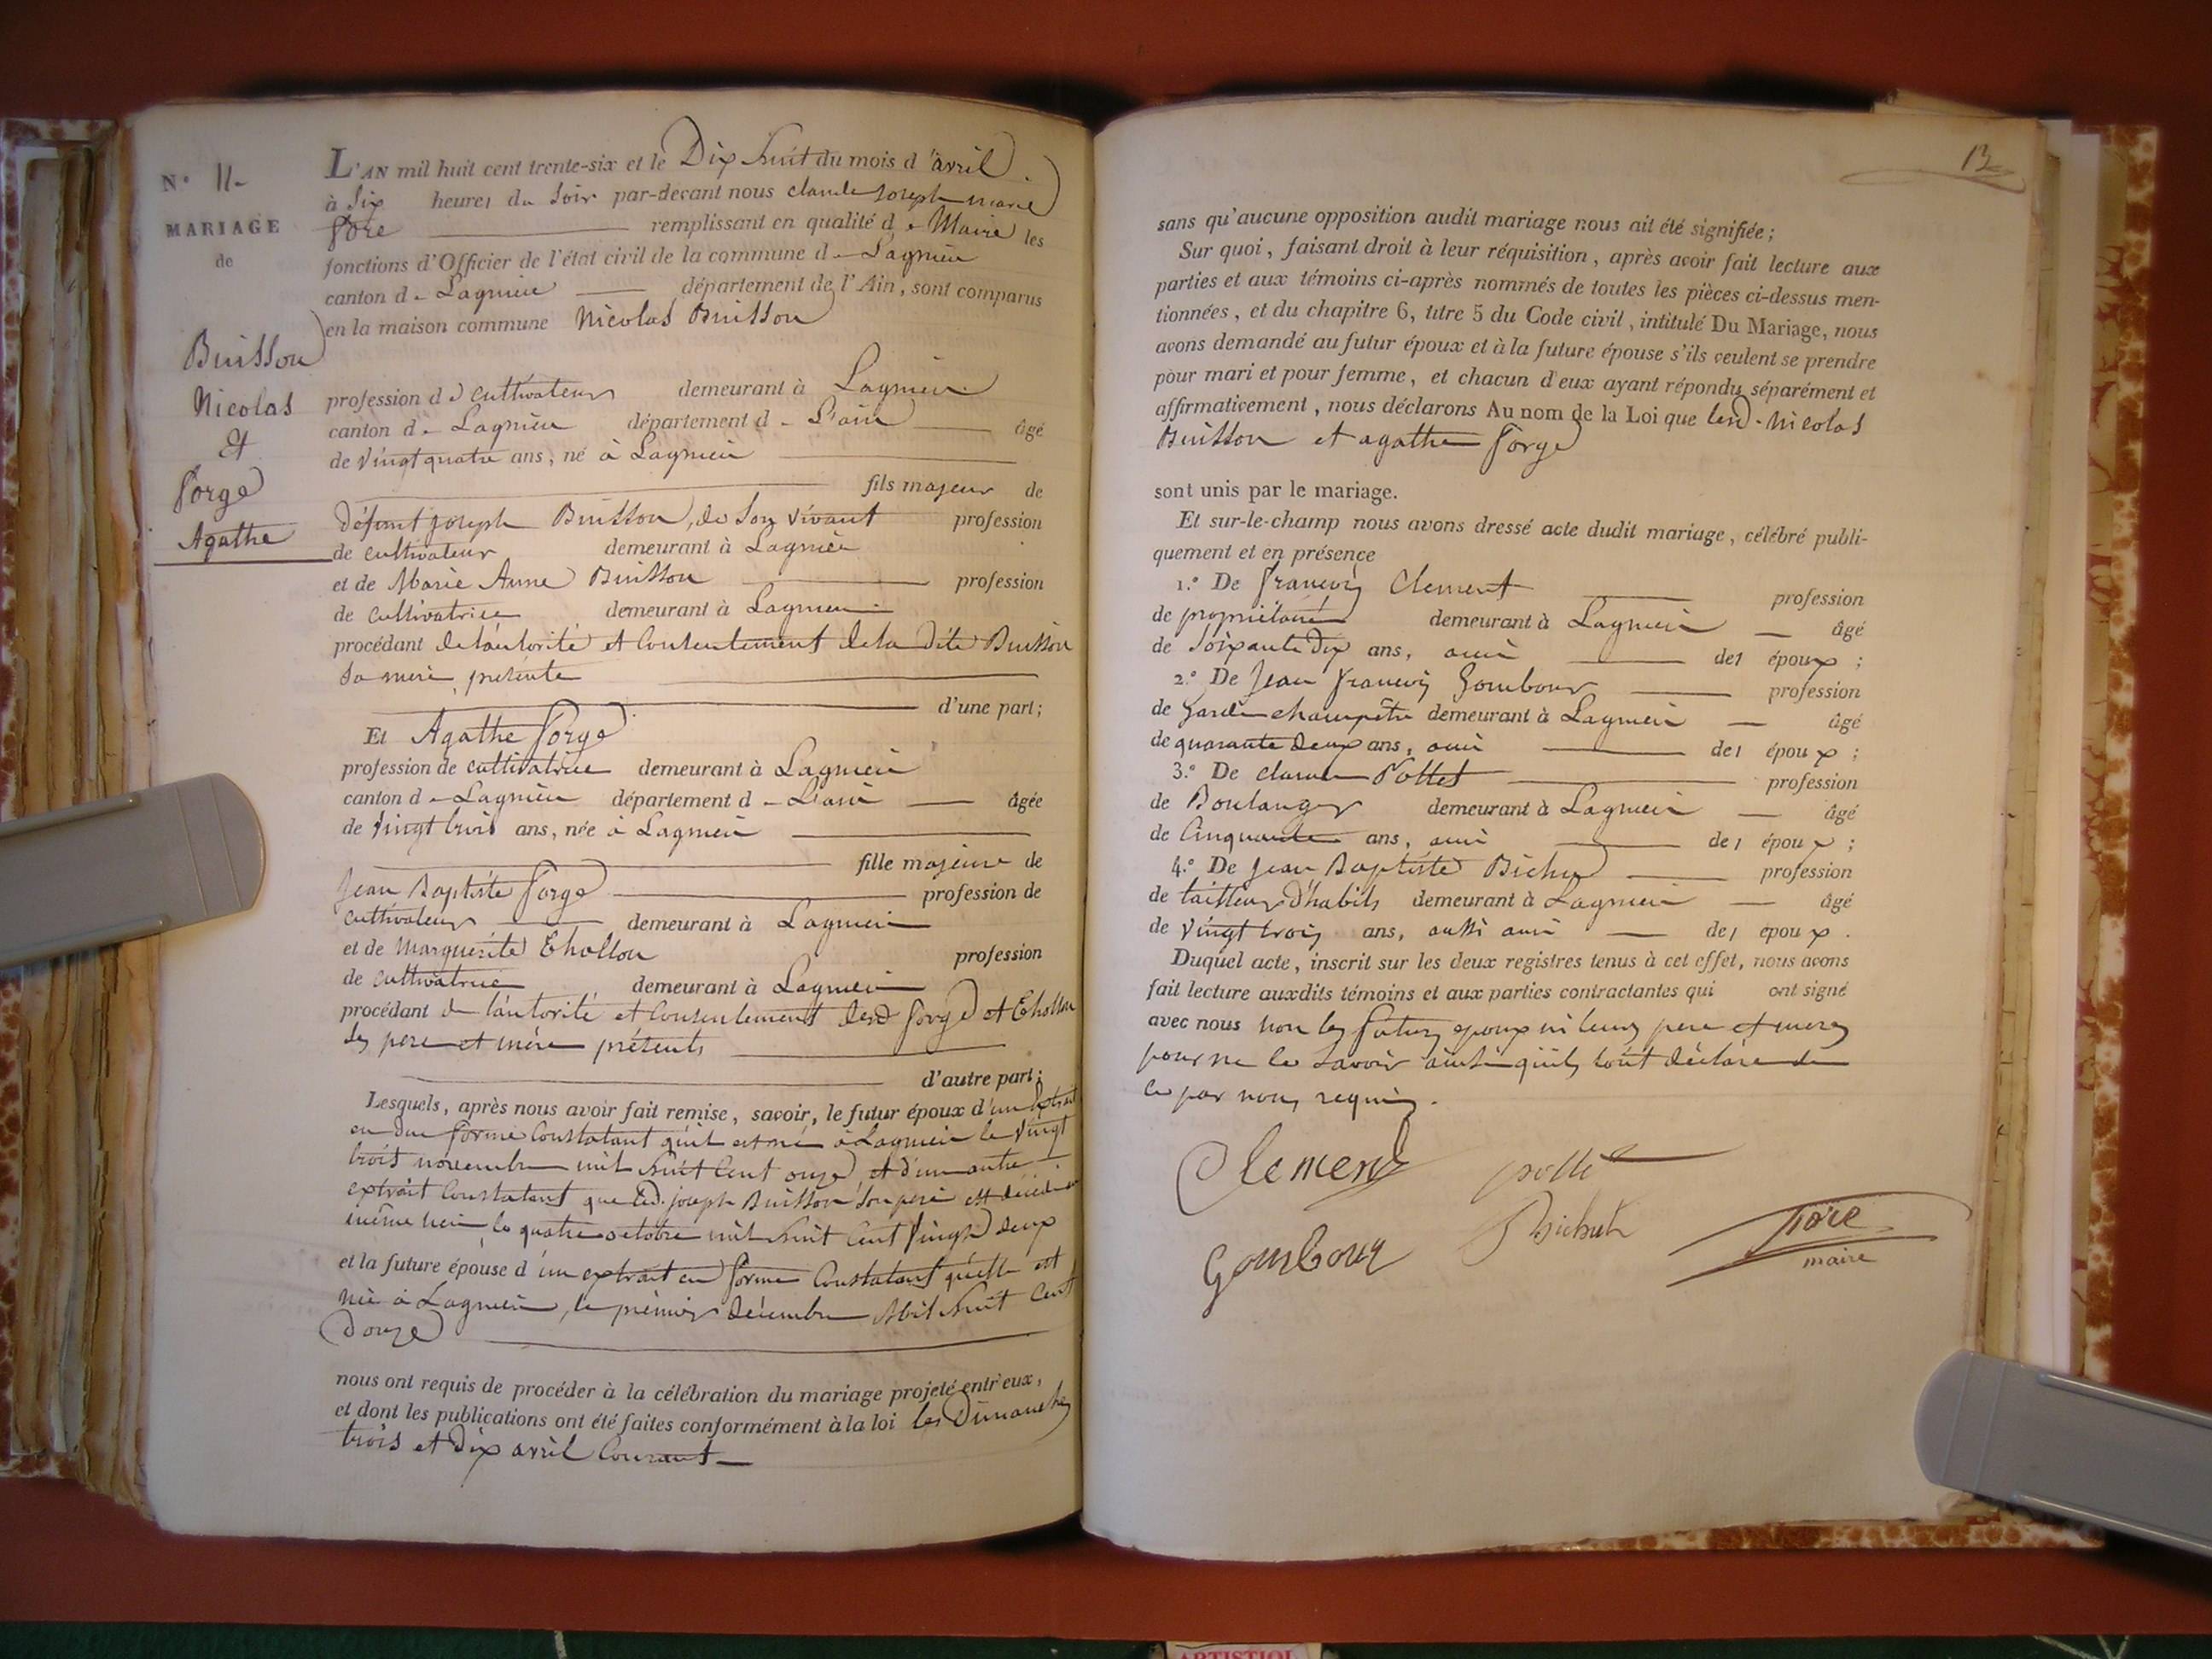 N° 11.
MARIAGE
de
Buisson
Nicolas
Et
Forge
Agathe
L'AN mil huit cent trente-six et le Dix huit du mois d'avril
à Six heures du Soir par-devant nous claude Joseph marie
remplissant en qualité de Maire les
fonctions d'Officier de l'état civil de la commune de Lagnieu
canton de Lagnieu département de l'Ain, sont comparus
en la maison commune Nicolas Buisson
profession de cultivateur demeurant à Lagnieu
canton de Lagnieu département de L'ain âgé
de Vingt quatre ans, né à Lagnieu
fils majeur de
Défunt Joseph Buisson, de Son vivant profession
de cultivateur demeurant à Lagnieu
et de Marie Anne Buisson profession
de cultivatrice demeurant à Lagnieu
procédant de l'autorité et Consentement de la dite Buisson
Sa mère présente
d'une part;
Et Agathe Forge
profession de cultivatrice demeurant à Lagnieu
canton de Lagnieu département de L'ain âgée
de Vingt trois ans, née à Lagnieu
fille majeure de
Jean Baptiste Forge profession de
cultivateur demeurant à Lagnieu
et de Marguerite Chollou
profession
de cultivatrice demeurant à Lagnieu
procédant de l'autorité et Consentement desd Forge et Chollou
Ses pere et mère présents
d'autre part;
Lesquels, après nous avoir fait remise, savoir, le futur époux d'un Extrait
en due forme Constatant qu'il est né à Lagnieu le Vingt
trois novembre mil huit Cent onze et d'un autre
extrait Constatant que led. joseph Buisson Son pere est décédé au
même lieu, le quatre octobre mil huit Cent Vingt deux
et la future épouse d'un extrait en forme Constatant qu'elle est
née à Lagnieu, le premier décembre Mil huit Cent
Douze
nous ont requis de procéder à la célébration du mariage projeté entr'eux,
et dont les publications ont été faites conformément à la loi les Dimanches
trois et Dix avril Courant
13
sans qu'aucune opposition audit mariage nous ait été signifiée;
Sur quoi, faisant droit à leur réquisition, après avoir fait lecture aux
parties et aux témoins ci-après nommés de toutes les pièces ci-dessus men-
tionnées, et du chapitre 6, titre 5 du Code civil, intitulé Du Mariage, nous
avons demandé au futur époux et à la future épouse s'ils veulent se prendre
pour mari et pour femme, et chacun d'eux ayant répondu séparément et
affirmativement, nous déclarons Au nom de la Loi que lesd. Nicolas
Buisson et agathe Forge
sont unis par le mariage.
Et sur-le-champ nous avons dressé acte dudit mariage, célébré publi-
quement et en présence
1.° De françois Clement profession
de propriétaire demeurant à Lagnieu âgé
de Soixante Dix ans, ami des époux;
2.° De Jean françois Gombour profession
de Garde champêtre demeurant à Lagnieu âgé
de quarante Deux ans, ami des époux;
3.° De claude Pollet profession
de Boulanger demeurant à Lagnieu âgé
de Cinquante ans, ami des époux;
4.° De Jean Baptiste Bichut profession
de tailleur d'habits demeurant à Lagnieu âgé
de Vingt trois ans, aussi ami des époux.
Duquel acte, inscrit sur les deux registres tenus à cet effet, nous avons
fait lecture auxdits témoins et aux parties contractantes qui ont signé
avec nous non les futurs epoux ni leurs pere et meres
pour ne le Savoir ainsi qu'ils l'ont déclaré de
ce par nous requis.
Clement pollet
Bichut
Gombour
maire